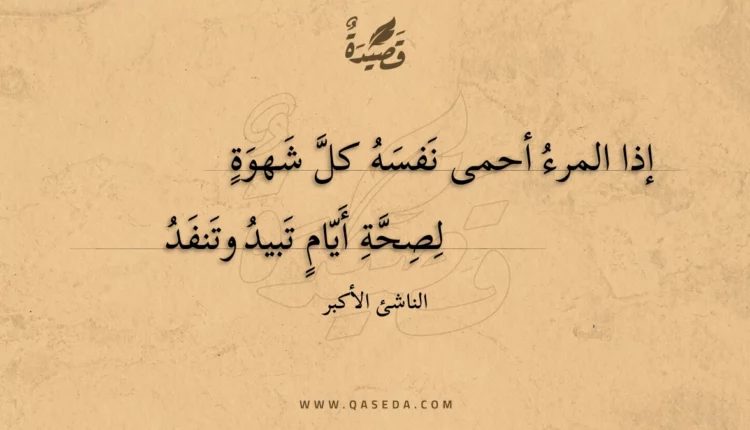 قَصِيدَةٌ
إذا المرءُ أحمى نَفسَهُ كلَّ شَهوَةٍ
لِصِحَّةِ أَيّامٍ تَبيدُ وتَنفَدُ
الناشئ الأكبر
WWW.QASEDA.COM